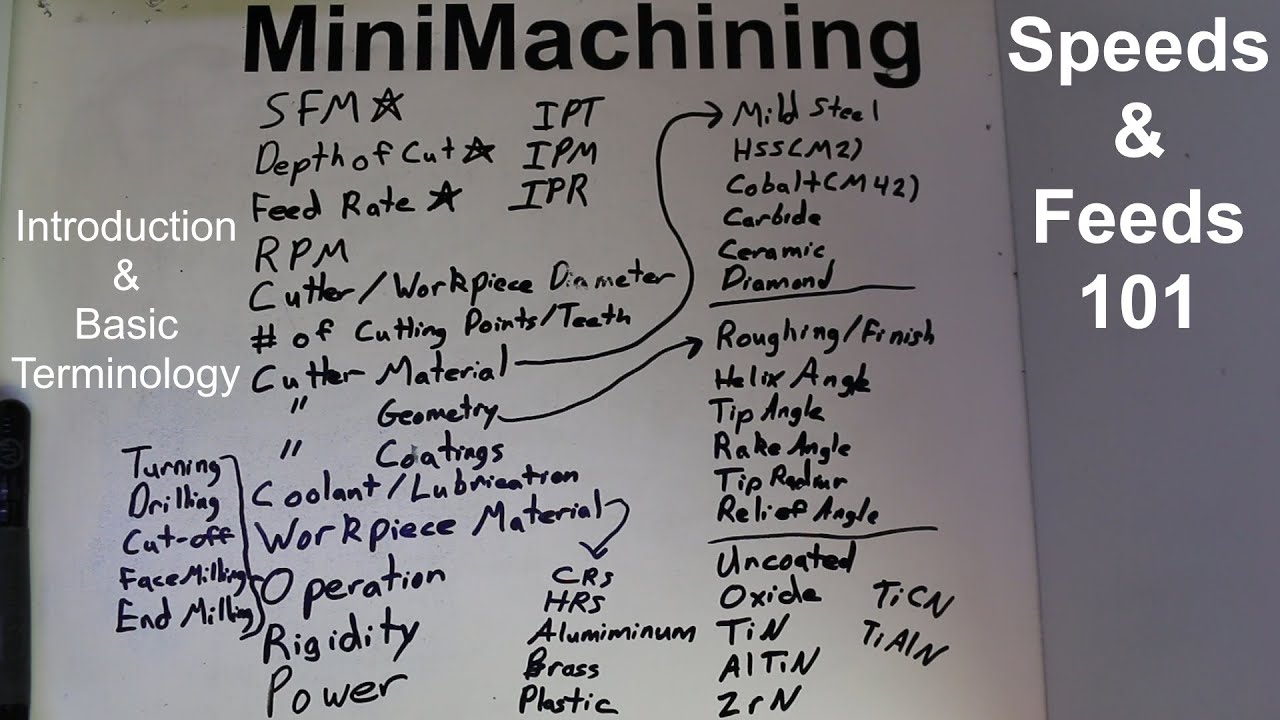 MiniMachining
Speeds
&
Feeds
101
Introduction
&
Basic
Terminology
SFM ☆
Depth of Cut ☆
Feed Rate ☆
RPM
Cutter/Workpiece Diameter
# of Cutting Points/Teeth
Cutter Material
" Geometry
" Coatings
Coolant/Lubrication
Workpiece Material
Operation
Rigidity
Power
IPT
IPM
IPR
Turning
Drilling
Cut-off
Face Milling
End Milling
CRS
HRS
Alumiminum
Brass
Plastic
Mild Steel
HSS(M2)
Cobalt(M42)
Carbide
Ceramic
Diamond
Roughing/Finish
Helix Angle
Tip Angle
Rake Angle
Tip
Relief Angle
Uncoated
Oxide
TiN
AlTiN
ZrN
TiCN
TiAlN